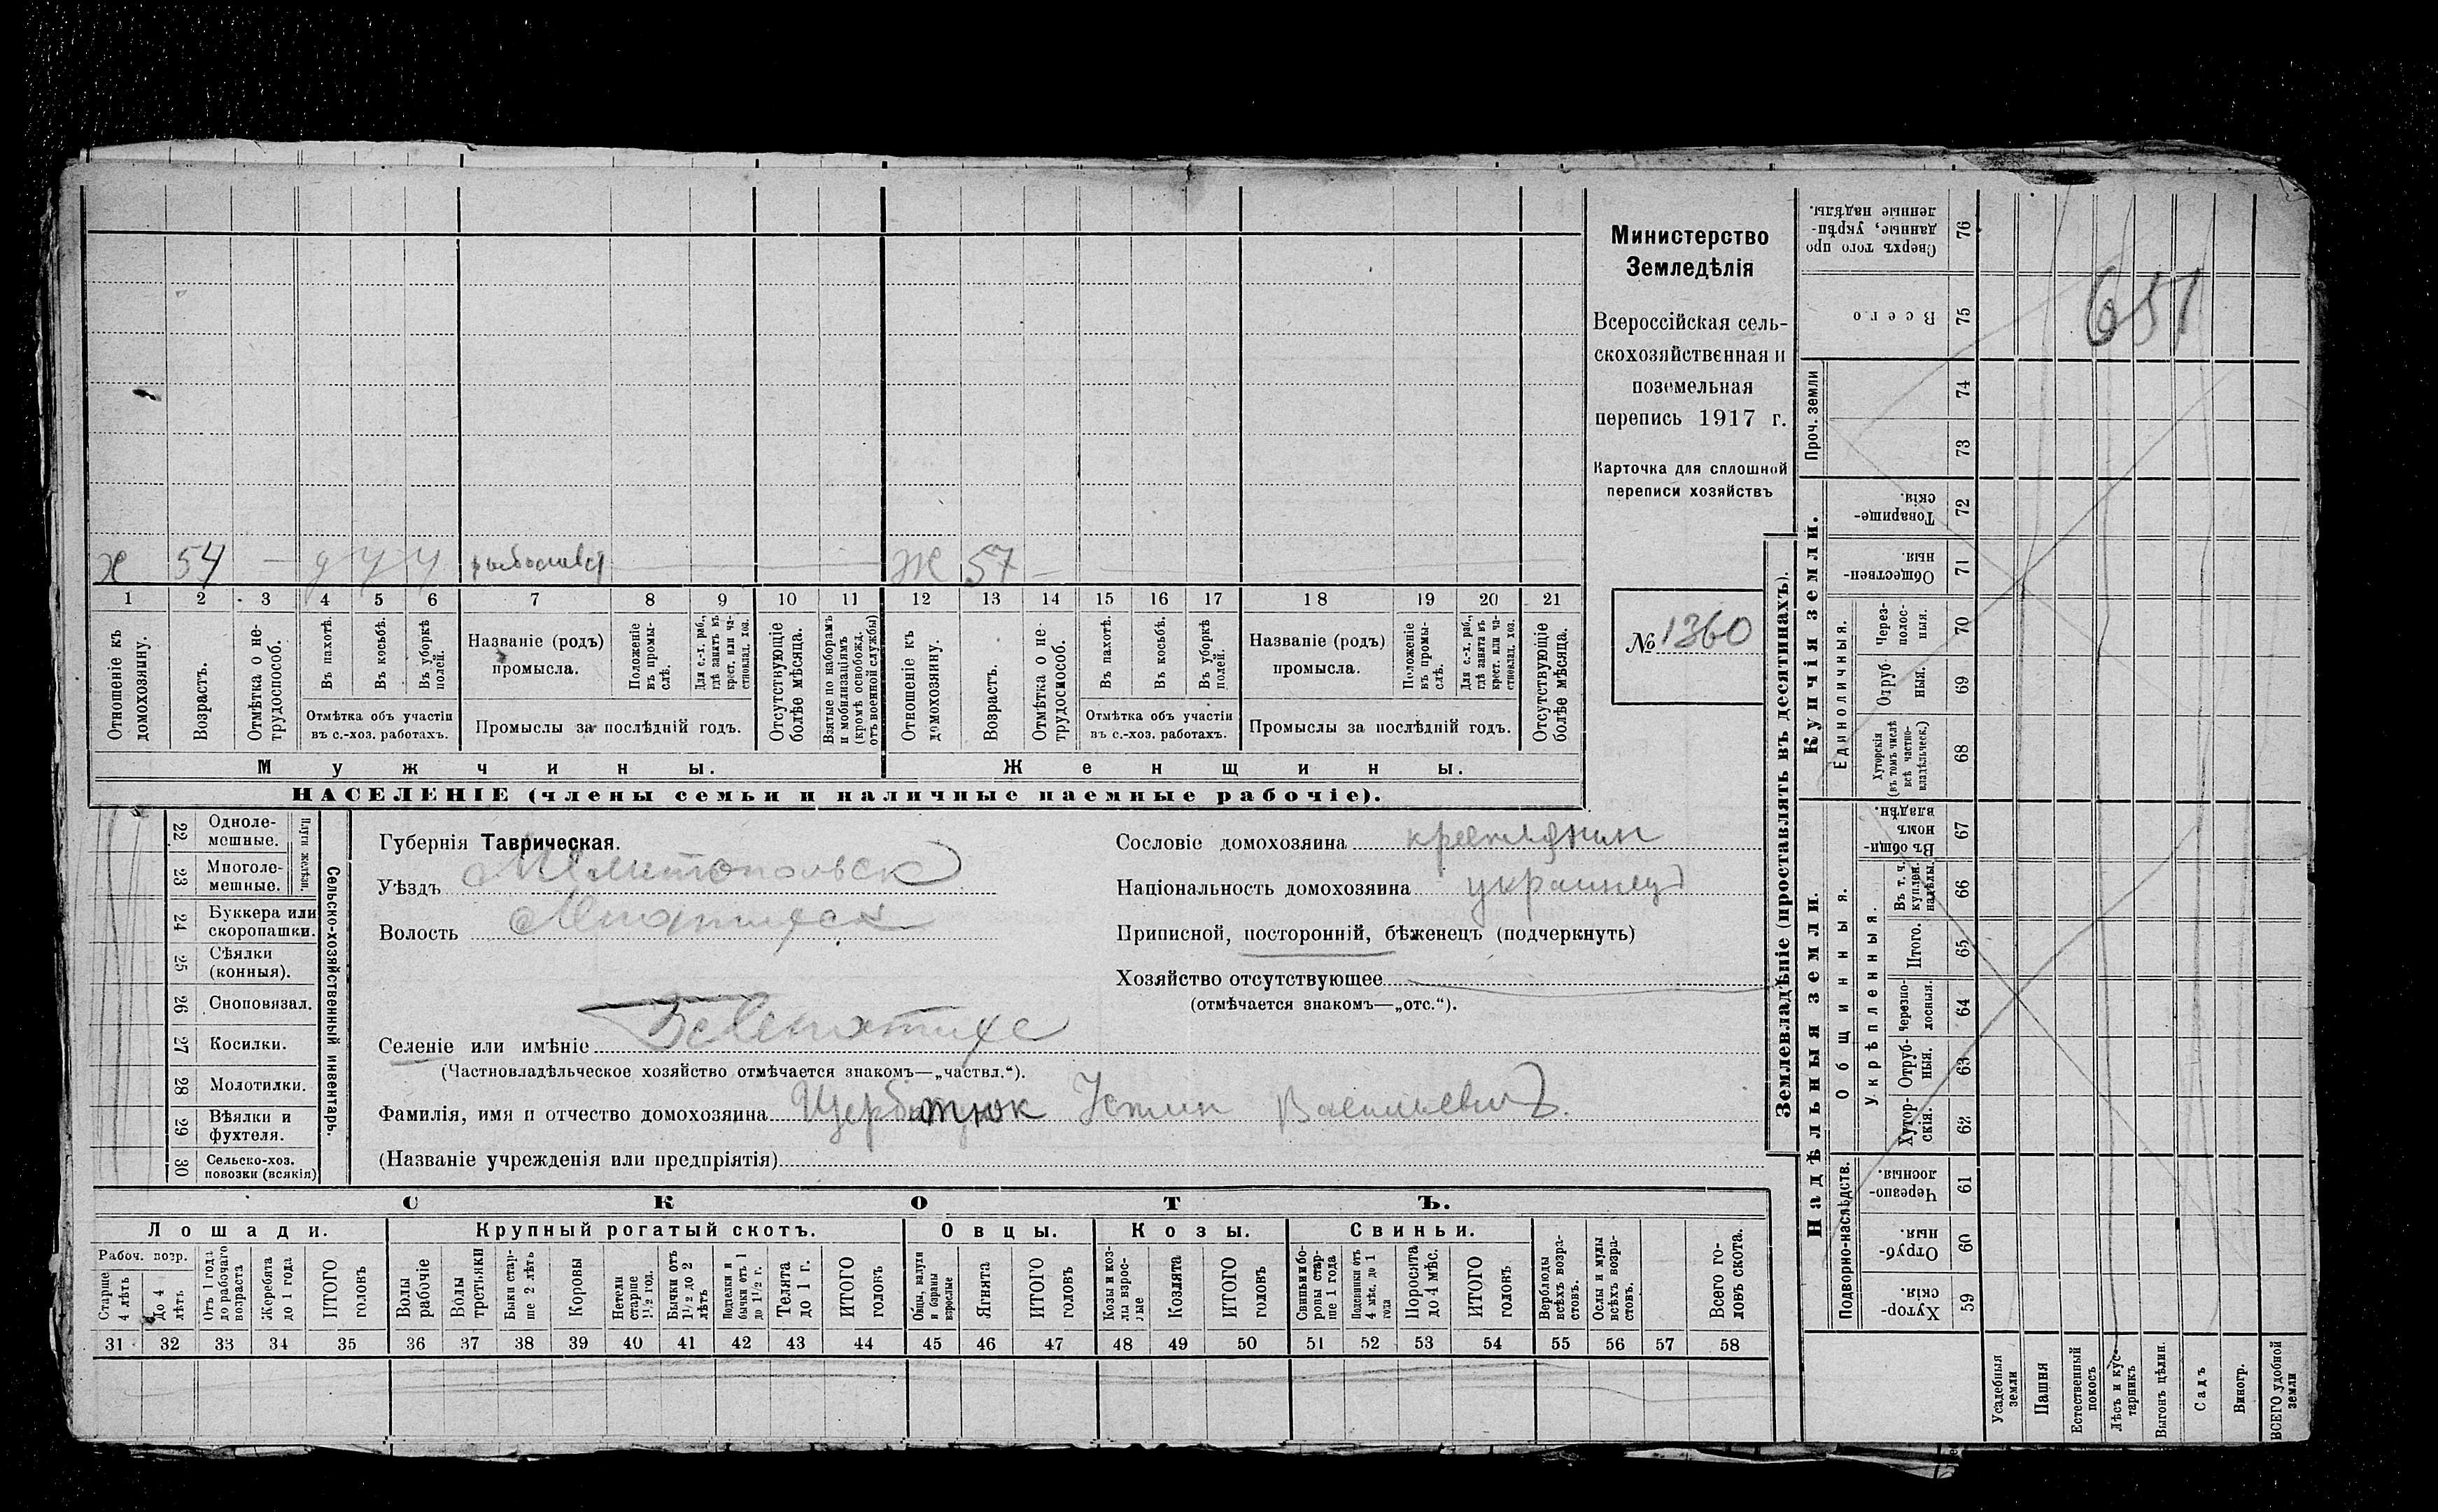 х 54 — рыболовст — — ж 57 —
1 2 3 4 5 6 7 8 9 10 11 12 13 14 15 16 17 18 19 20 21
Отношеніе къ домохозяину.
Возрастъ.
Отмѣтка о не-
трудоспособ.
Въ пахотѣ.
Въ косьбѣ.
Въ уборкѣ полей.
Отмѣтка объ участіи
въ с.-хоз. работахъ.
Названіе (родъ)
промысла.
Положеніе въ промы-
слѣ.
Для с.-х. раб., гдѣ занятъ въ крест. или ча-
стновлад. хоз.
Промыслы за послѣдній годъ.
Отсутствующіе болѣе мѣсяца.
Взятые по наборамъ и мобилизаціямъ (кромѣ освобожд. отъ военной службы)
Отношеніе къ домохозяину.
Возрастъ.
Отмѣтка о не-
трудоспособ.
Въ пахотѣ.
Въ косьбѣ.
Въ уборкѣ полей.
Отмѣтка объ участіи
въ с.-хоз. работахъ.
Названіе (родъ)
промысла.
Положеніе въ промы-
слѣ.
Для с.-х. раб., гдѣ заняты въ крест. или ча-
стновлад. хоз.
Промыслы за послѣдній годъ.
Отсутствующіе болѣе мѣсяца.
Мужчины. Женщины.
НАСЕЛЕНІЕ (члены семьи и наличные наемные рабочіе).
Министерство
Земледѣлія
Всероссійская сель-
скохозяйственная и
поземельная
перепись 1917 г.
Карточка для сплошной
переписи хозяйствъ
№ 1360
22 Одноле-
мешные.
23 Многоле-
мешные.
Плуги желѣзн.
24 Буккера или
скоропашки.
25 Сѣялки
(конныя).
26 Сноповязал.
27 Косилки.
28 Молотилки.
29 Вѣялки и
фухтеля.
30 Сельско-хоз.
повозки (всякія)
Сельско-хозяйственный инвентарь.
Губернія Таврическая.
Уѣздъ Мелитопольск
Волость
Селеніе или имѣніе
(Частновладѣльческое хозяйство отмѣчается знакомъ—„частвл.“).
Фамилія, имя и отчество домохозяина Щербатюк Устин Васильевич
(Названіе учрежденія или предпріятія)
Сословіе домохозяина крестянин
Національность домохозяина украинец
Приписной, посторонній, бѣженецъ (подчеркнуть)
Хозяйство отсутствующее
(отмѣчается знакомъ—„отс.“).
СКОТЪ.
Лошади. Крупный рогатый скотъ. Овцы. Козы. Свиньи.
Рабоч. возр.
Старше 4 лѣтъ
До 4 лѣтъ
Отъ 1 года до рабочаго возраста
Жеребята до 1 года
ИТОГО головъ
Волы рабочіе
Волы третьяки
Быки стар-
ше 2 лѣтъ
Коровы
Нетели старше 1½ год.
Бычки отъ 1½ до 2 лѣтъ
Подтелки и бычки отъ 1 до 1½ г.
Телята до 1 г.
ИТОГО головъ
Овцы, валухи и бараны взрослые
Ягнята
ИТОГО головъ
Козы и коз-
лы взрос-
лые
Козлята
ИТОГО головъ
Свиньи и бо-
ровы стар-
ше 1 года
Подсвинки отъ 4 мѣс. до 1 года
Поросята до 4 мѣс.
ИТОГО головъ
Верблюды всѣхъ возра-
стовъ.
Ослы и мулы всѣхъ возра-
стовъ.
Всего го-
ловъ скота.
31 32 33 34 35 36 37 38 39 40 41 42 43 44 45 46 47 48 49 50 51 52 53 54 55 56 57 58
Землевладѣніе (проставлять въ десятинахъ).
651
Сверхъ того про
данные, укрѣп-
ленные надѣлы. 76
Всего 75
Проч. земли
74
73
Купчія земли.
Товарище-
скія. 72
Обществен-
ныя. 71
Единоличныя.
Через-
полос-
ныя. 70
Отруб-
ныя. 69
Хуторскія (въ томъ числѣ всѣ частно-
владѣльческ.) 68
Надѣльныя земли.
Общинныя.
Въ общи-
номъ
владѣн. 67
Укрѣпленныя.
Въ т. ч. куплен. надѣлы. 66
Итого. 65
Черезпо-
лосныя. 64
Отруб-
ныя. 63
Хутор-
скія. 62
Подворно-наслѣдств.
Черезпо-
лосныя. 61
Отруб-
ныя. 60
Хутор-
скія. 59
Усадебныя земли
Пашня
Естественный покосъ
Лѣсъ и кус-
тарникъ
Выгонъ цѣлин.
Садъ
Виногр.
ВСЕГО удобной земли